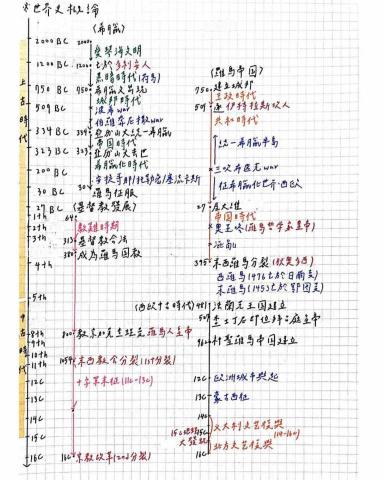 *世界史概論
(希臘)
2000 BC 2000
愛琴海文明
1200 BC 1200
多利安人
黑暗時代(荷馬)
750 BC 750
城邦時代
509 BC
波希war
伯羅奔尼撒war
334 BC 334
亞歷山大統一希臘
帝國時代
323 BC 323
亞歷山大去世
希臘化時代
200 BC
30 BC 30
羅馬征服
27 BC
(基督教發展)
1th 64
教難時期
2th
3th 313
基督教合法
380
成為羅馬國教
4th
5th
8th 800
教宗加冕查理曼為羅馬人皇帝
9th
10th
11th 1054
東西教會分裂(1st分裂)
12C
十字軍東征(11c-13C)
13C
14C
15C
16C 16C
宗教改革(2nd分裂)
上古時代
中古時代
(羅馬帝國)
750 建立城邦
王政時代
509 逐伊特拉斯坎人
共和時代
統一希臘半島
三次布匿克war
征希臘化世界、西歐
27 屋大維
帝國時代
奧里略(羅馬哲學家皇帝)
395 東西羅馬分裂(狄奧多西)
西羅馬(476亡於日耳曼)
東羅馬(1453亡於鄂圖曼)
(西歐中古時代) 481 法蘭克王國建立
962 神聖羅馬帝國建立
12C 歐洲城市興起
13C 蒙古西征
14C
義大利文藝復興
(14-16C)
15C
北方文藝復興
16C
15C地理大發現